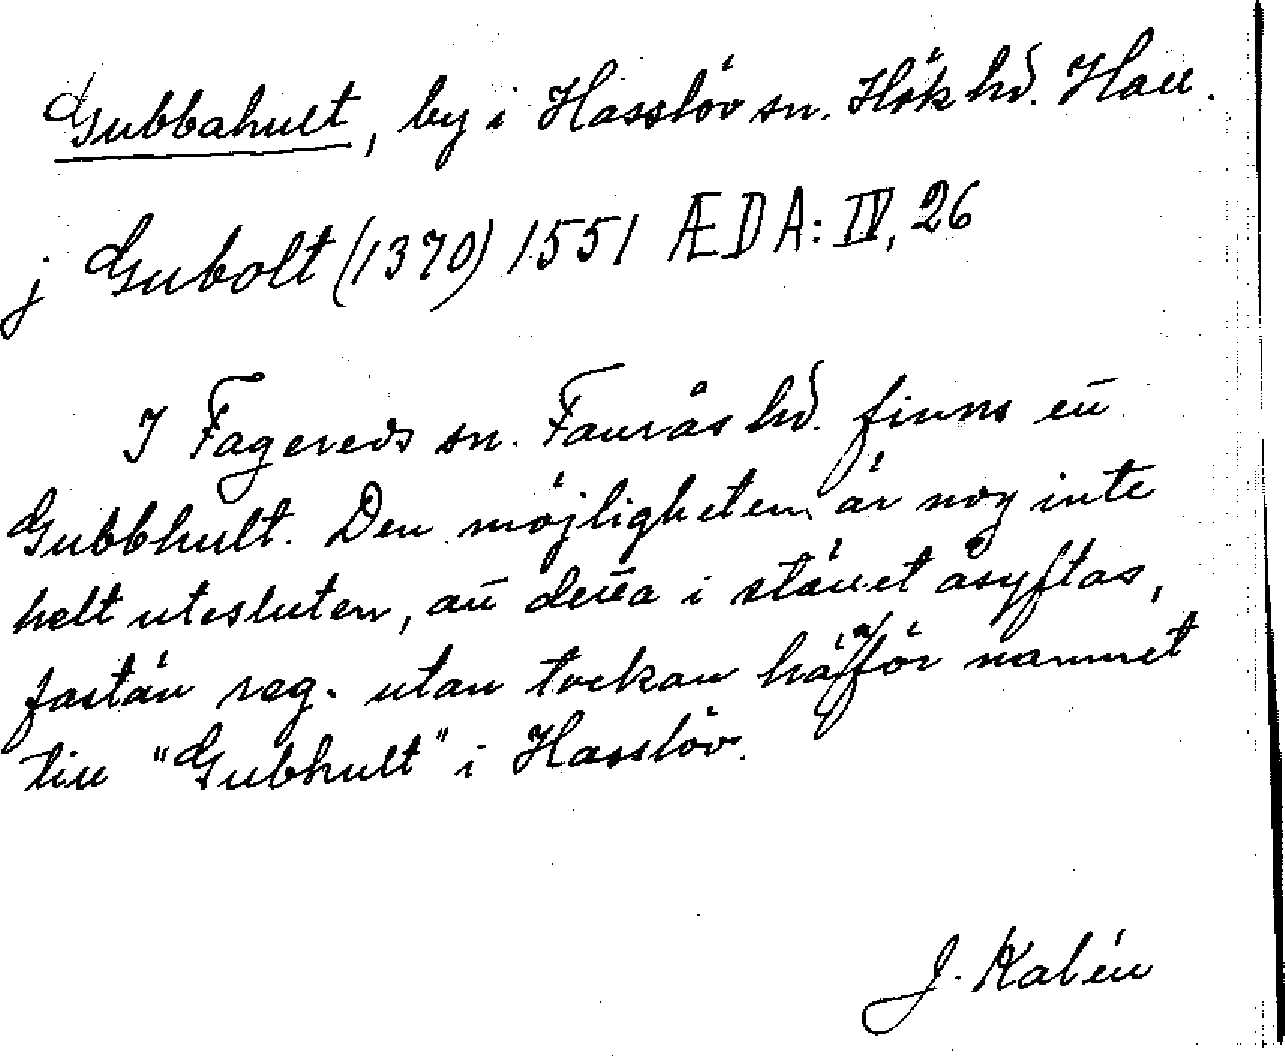 Gubbahult, by i Hasslöv sn. Hök hd. Hall.
j Gubolt (1370) 1551 ÆDA: IV, 26
I Fagereds sn. Faurås hd. finns ett
Gubbhult. Den möjligheten är nog inte
helt utesluten, att detta i stället åsyftas,
fastän reg. utan tvekan häför namnet
till "Gubhult" i Hasslöv.
J. Kalén